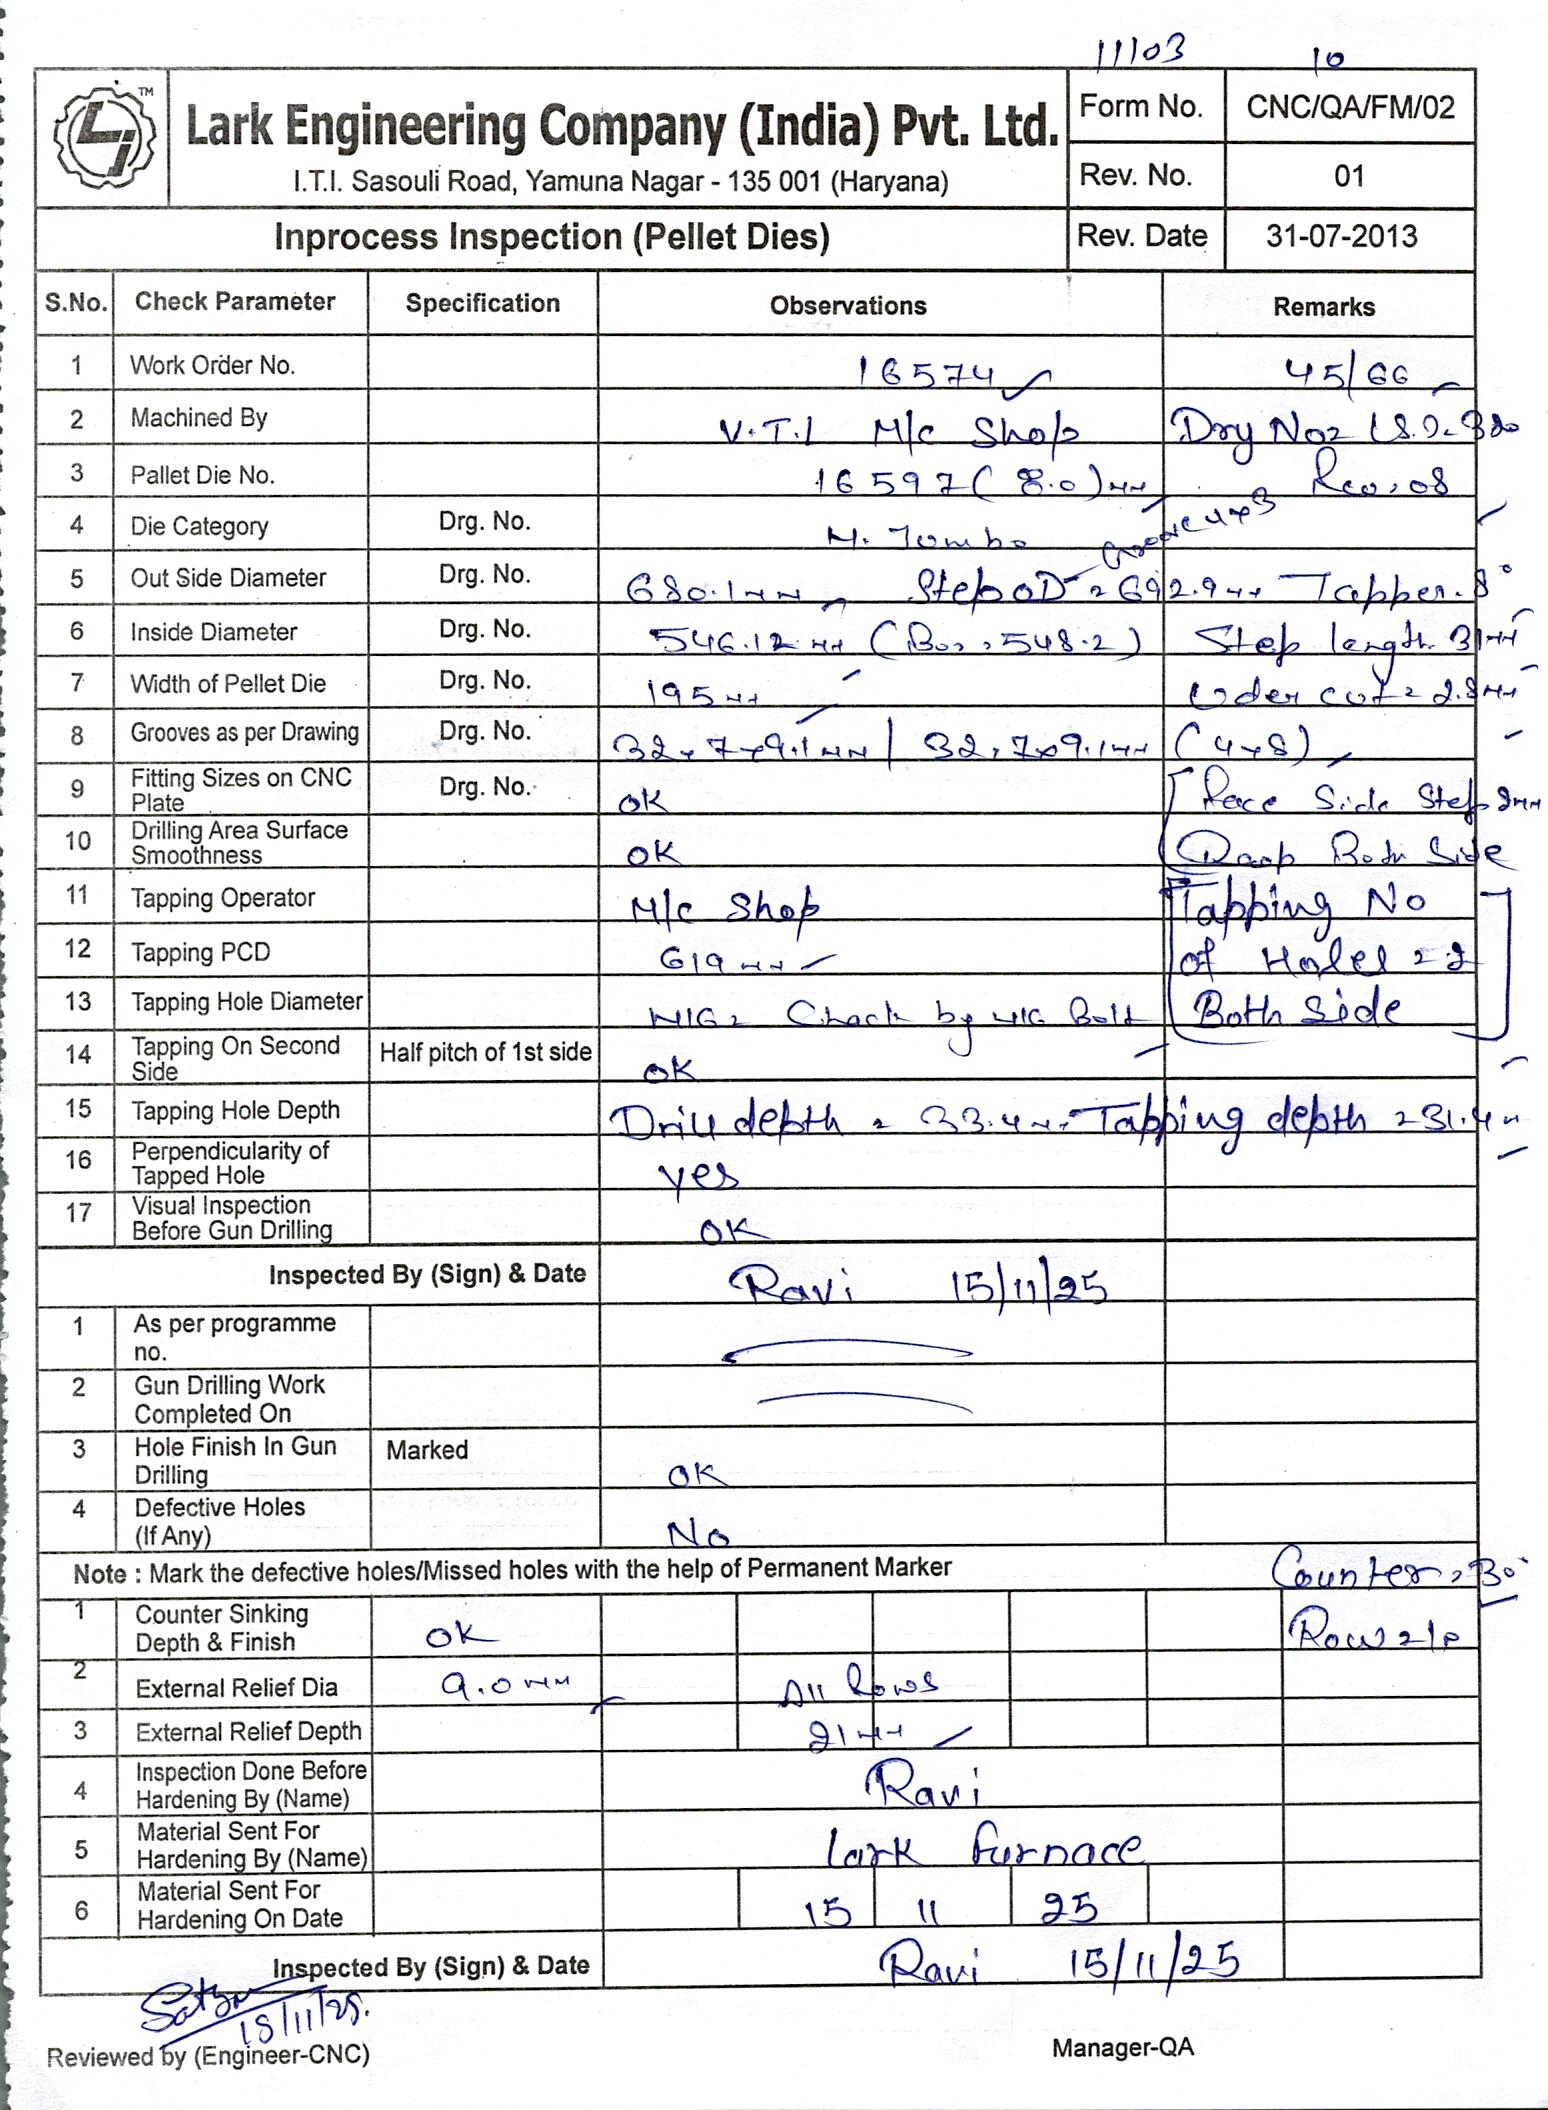 11103 10
TM
Lark Engineering Company (India) Pvt. Ltd.
I.T.I. Sasouli Road, Yamuna Nagar - 135 001 (Haryana)
Form No. CNC/QA/FM/02
Rev. No. 01
Inprocess Inspection (Pellet Dies) Rev. Date 31-07-2013
S.No. Check Parameter Specification Observations Remarks
1 Work Order No. 16574 45/66
2 Machined By V.T.L M/c Shop
3 Pallet Die No. 16597 (8.0)mm Rev. 08
4 Die Category Drg. No. Groove 4x3
5 Out Side Diameter Drg. No. 680.1mm Step OD = 692.9mm Tapper. 8°
6 Inside Diameter Drg. No. 546.12mm (Bor = 548.2) Step length 31mm
7 Width of Pellet Die Drg. No. 195mm Uder cut = 2.8mm
8 Grooves as per Drawing Drg. No. 32.7x9.1mm / 32.7x9.1mm (4x8)
9 Fitting Sizes on CNC Plate Drg. No. OK Face Side Step 2mm
10 Drilling Area Surface Smoothness OK Both Side
11 Tapping Operator M/c Shop Tapping No
12 Tapping PCD 619mm of Holes = 2
13 Tapping Hole Diameter M16 = Chack by M16 Bolt Both Side
14 Tapping On Second Side Half pitch of 1st side OK
15 Tapping Hole Depth Drill depth = 33.4mm Tapping depth = 31.4m
16 Perpendicularity of Tapped Hole yes
17 Visual Inspection Before Gun Drilling OK
Inspected By (Sign) & Date Ravi 15/11/25
1 As per programme no.
2 Gun Drilling Work Completed On
3 Hole Finish In Gun Drilling Marked OK
4 Defective Holes (If Any) No
Note : Mark the defective holes/Missed holes with the help of Permanent Marker Counter = 30°
1 Counter Sinking Depth & Finish OK
2 External Relief Dia 9.0mm All Rows
3 External Relief Depth 21mm
4 Inspection Done Before Hardening By (Name) Ravi
5 Material Sent For Hardening By (Name) Lark furnace
6 Material Sent For Hardening On Date 15 11 25
Inspected By (Sign) & Date Ravi 15/11/25
18/11/25.
Reviewed by (Engineer-CNC) Manager-QA